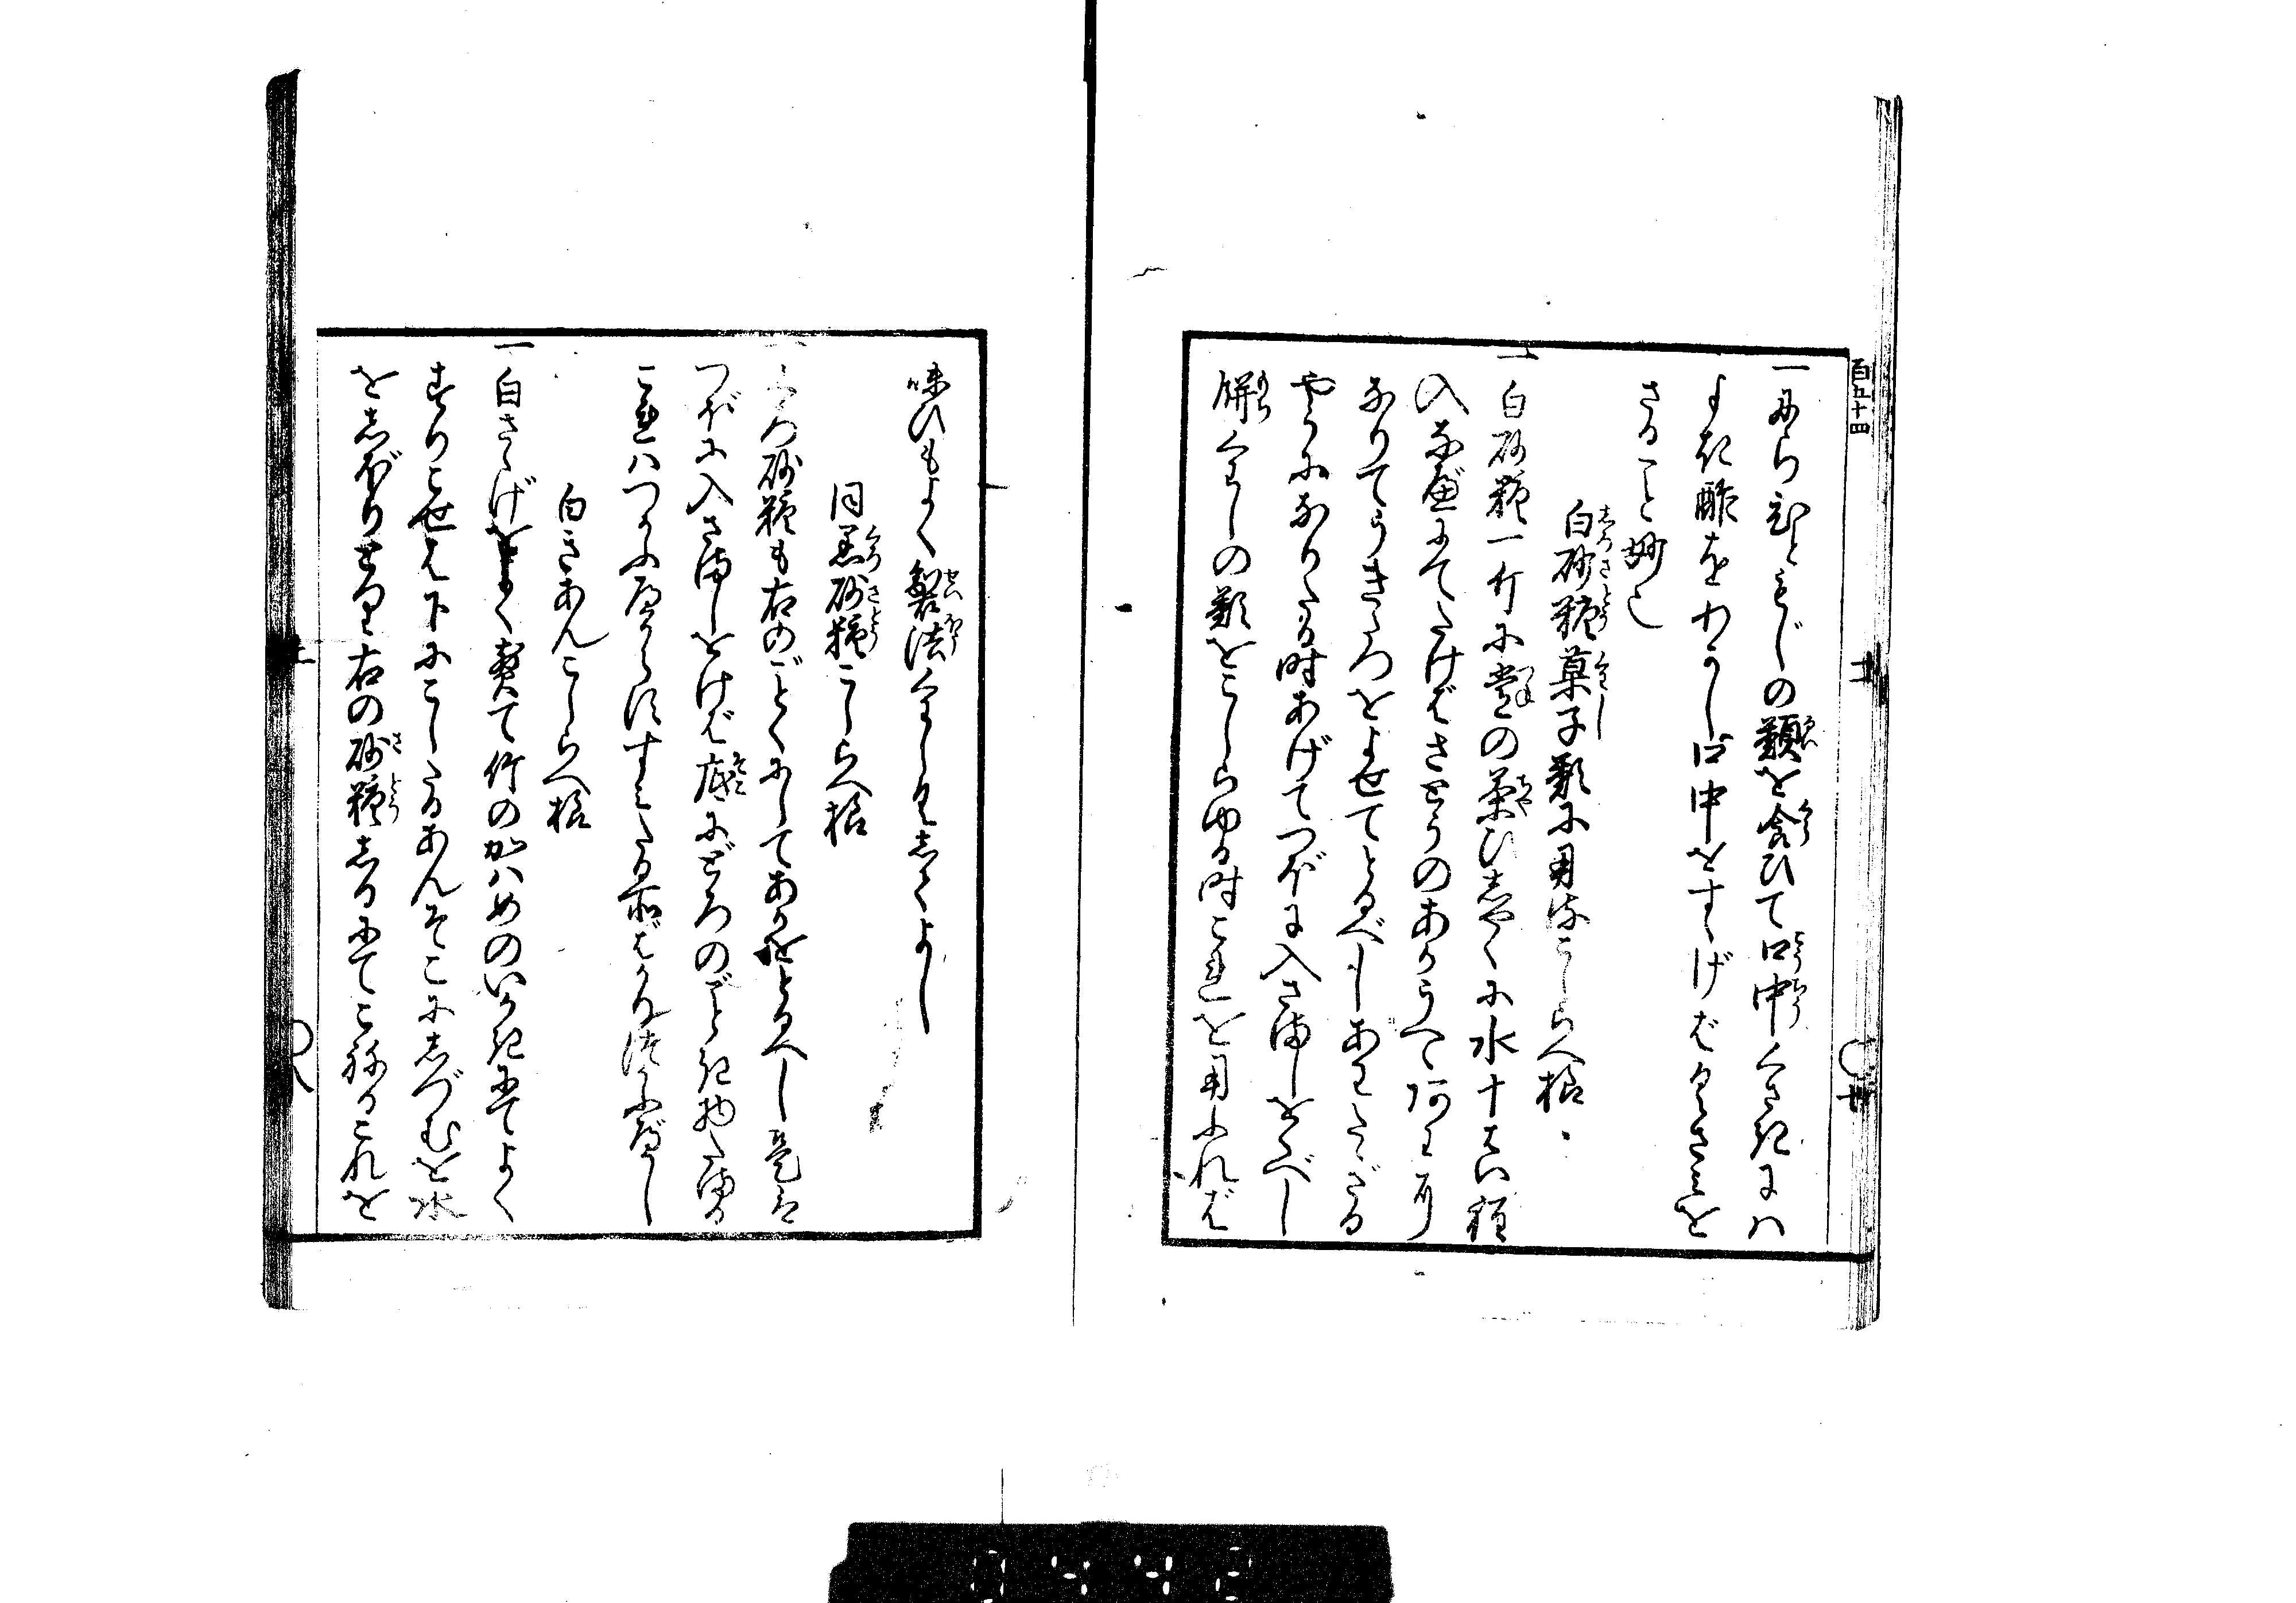 百五十四
一にらひともじの類を食ひて口中くさきにハ
よき酢をわかし口中をすゝげバくささを
さること妙也
白砂糖菓子類に用ゆるこしらへ様
一白砂糖一斤に常の茶ひしやくに水十はい程
入なべにてたけばさとうのあかうへゝ
なりてうきたるをよせてとるべしあわたゝざる
やうになりたる時あげてつぼに入さましをくべし
餅くわしの類をこしらゆる時これを用ふれば
味ひもよく製法くわしき
同黒砂糖こしらへ様
一くろ砂糖も右のごとくにしてあかをとるべし
つぼに入さましをけば底にどろのごとき物たまる
これハつかふべからずすみたる所ばかり
白きあんこしらへ様
一白さゝげをよく煮て竹のかハめのいかきにてよく
すりこせば下にこしたるあんそこにしづむを水
をしぼり右の砂糖しるにてこねるこれを